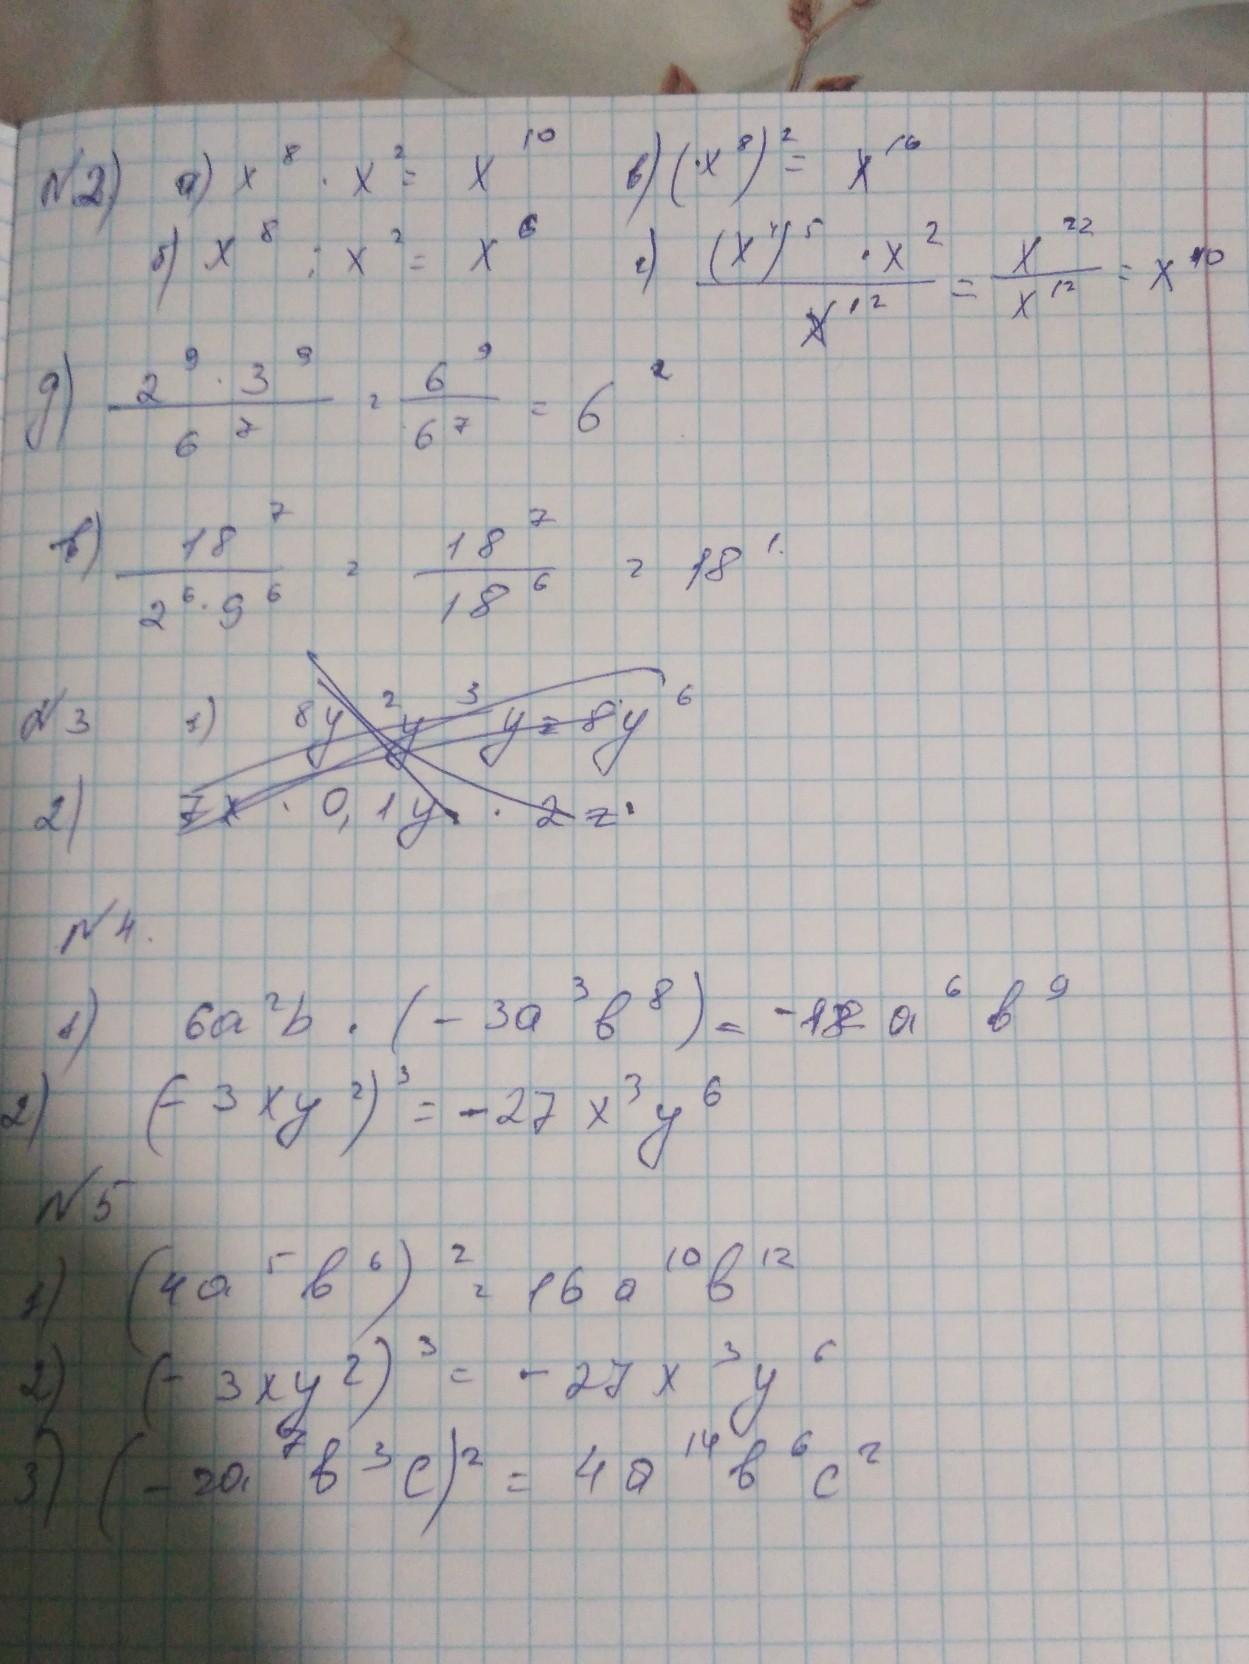 №2) а) x⁸ · x² = x¹⁰ в) (x⁸)² = x¹⁶
б) x⁸ : x² = x⁶ г) (x⁴)⁵ · x² / x¹² = x²² / x¹² = x¹⁰
д) 2⁹ · 3⁹ / 6⁷ = 6⁹ / 6⁷ = 6²
в) 18⁷ / 2⁶ · 9⁶ = 18⁷ / 18⁶ = 18¹
№3 1) 8y² y³ y = 8y⁶
2) 7x · 0,1y · 2z
№4.
1) 6a²b · (-3a³b⁸) = -18 a⁶ b⁹
2) (-3xy²)³ = -27x³y⁶
№5
1) (4a⁵b⁶)² = 16a¹⁰b¹²
2) (-3xy²)³ = -27x³y⁶
3) (-2a⁷b³c)² = 4a¹⁴b⁶c²